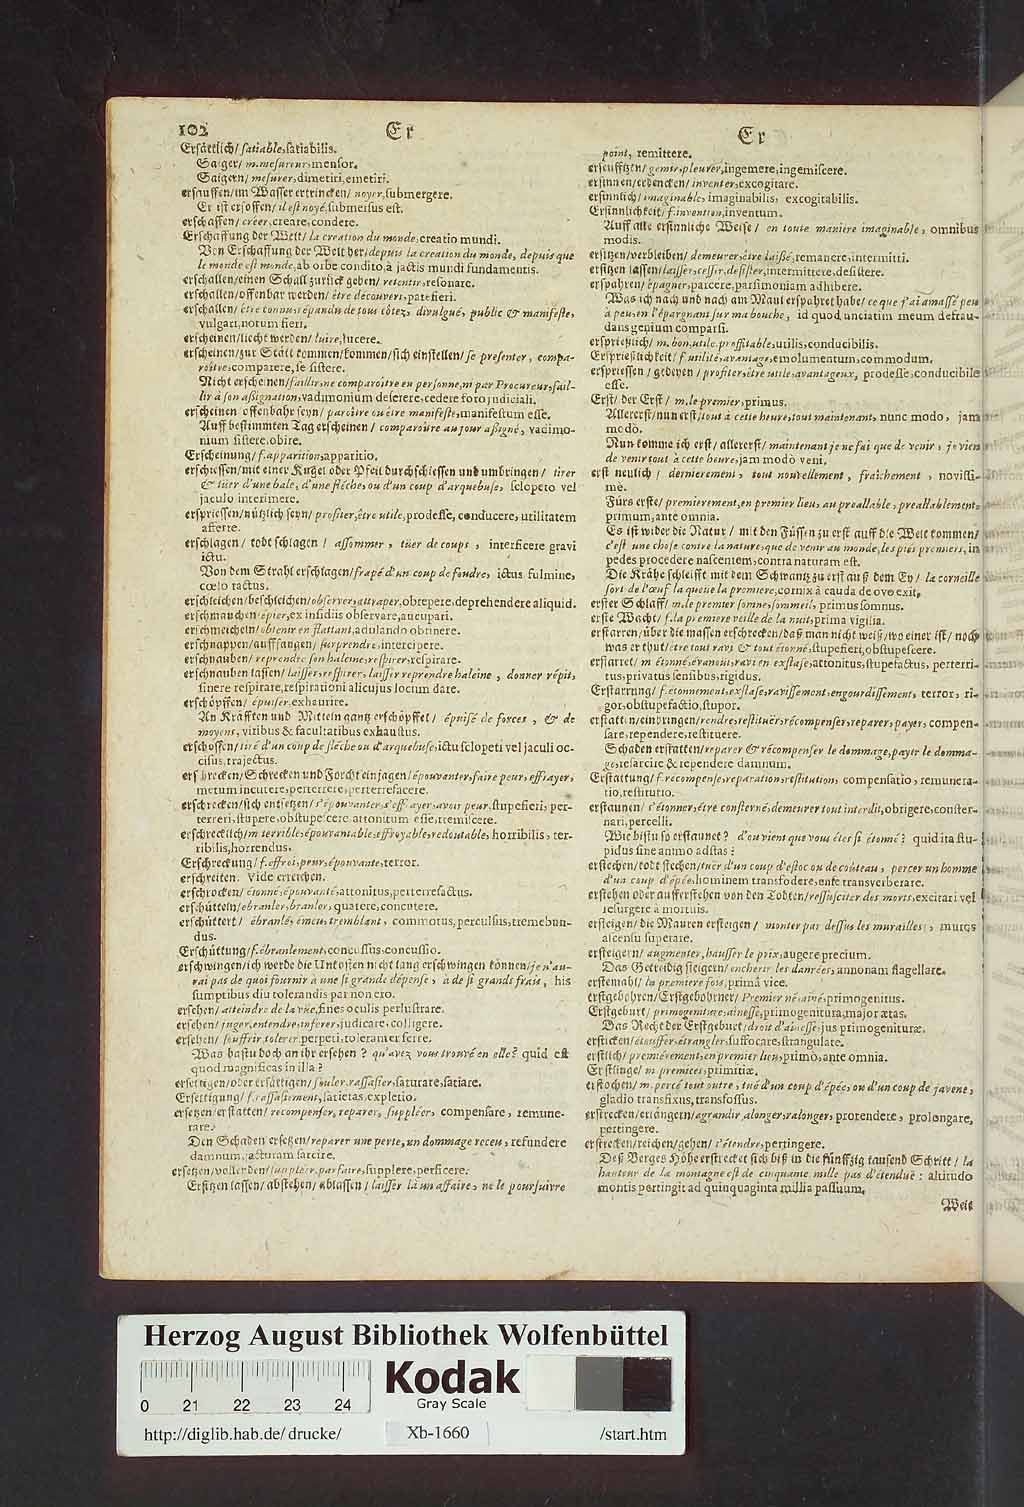 102 Er
Ersättlich/ satiable, satiabilis.
Saiger/ m. mesureur, mensor.
Saigern/ mesurer, dimetiri, emetiri.
ersauffen/im Wasser ertrincken/ noyer, submergere.
Er ist ersoffen/ il est noyé, submersus est.
erschaffen/ créer, creare, condere.
Erschaffung der Welt/ la creation du monde, creatio mundi.
Von Erschaffung der Welt her/ depuis la creation du monde, depuis que
le monde est monde, ab orbe condito, à jactis mundi fundamentis.
erschallen/einen Schall zurück geben/ retentir, resonare.
erschallen/offenbar werden/ être découvert, patefieri.
erschallen/ être connu, répandu de tous côtez, divulgué, public & manifeste,
vulgari, notum fieri.
erscheinen/liecht werden/ luire, lucere.
erscheinen/zur Stätt kommen/kommen/sich einstellen/ se presenter, compa-
roître, comparere, se sistere.
Nicht erscheinen/ faillir, ne comparoître en personne, ni par Procureur, fail-
lir à son aßignation, vadimonium deserere, cedere foro judiciali.
erscheinen offenbahr seyn/ paroître ou être manifeste, manifestum esse.
Auff bestimmten Tag erscheinen/ comparoître au jour aßigné, vadimo-
nium sistere, obire.
Erscheinung/ f. apparition, apparitio.
erschiessen/mit einer Kugel oder Pfeil durchschiessen und umbringen/ tirer
& tüer d'une bale, d'une fléche, ou d'un coup d'arquebuse, sclopeto vel
jaculo interimere.
erspriessen/nützlich seyn/ profiter, être utile, prodesse, conducere, utilitatem
afferre.
erschlagen/ todt schlagen/ assommer, tüer de coups, interficere gravi
ictu.
Von dem Strahl erschlagen/ frapé d'un coup de foudre, ictus fulmine,
cœlo tactus.
erschleichen/beschleichen/ observer, attraper, obrepere, deprehendere aliquid.
erschmauchen épier, ex insidiis observare, aucupari.
erschmeicheln/ obtenir en flattant, adulando obtinere.
erschnappen/auffangen/ surprendre, intercipere.
erschnauben/ reprendre son haleine, respirer, respirare.
erschnauben lassen/ laisser, respirer, laisser reprendre haleine, donner répit,
sinere respirare, respirationi alicujus locum dare.
erschöpffen/ épuiser, exhaurire.
An Kräfften und Mitteln gantz erschöpffet/ épuisé de forces, & de
moyens, viribus & facultatibus exhaustus.
erschossen/ tiré d'un coup de fléche ou d'arquebuse, ictu sclopeti vel jaculi oc-
cisus, trajectus.
erschrecken/Schrecken und Forcht einjagen/ épouvanter, faire peur, effrayer,
metum incutere, perterrere, perterrefacere.
erschrecken/sich entsetzen/ s'épouvanter, s'effrayer, avoir peur, stupefieri, per-
terreri, stupere, obstupescere, attonitum esse, tremiscere.
erschrecklich/ m. terrible, épouvantable, effroyable, redoutable, horribilis, ter-
ribilis, horrendus.
Erschreckung/ f. effroi, peur, épouvante, terror.
erschreiten. Vide erreichen.
erschrocken/ étonné, épouvanté, attonitus, perterrefactus.
erschütteln/ ebranler, branler, quatere, concutere.
erschüttert/ ébranlé, émeu, tremblant, commotus, perculsus, tremebun-
dus.
Erschüttung/ f. ébranlement, concussus, concussio.
erschwingen/ich werde die Unkosten nicht lang erschwingen können/ je n'au-
rai pas de quoi fournir à une si grande dépense, à de si grands frais, his
sumptibus diu tolerandis par non ero.
ersehen/ atteindre de la vüe, fines oculis perlustrare.
ersehen/ juger, entendre, inferer, judicare, colligere.
ersehen/ souffrir, tolerer, perpeti, toleranter ferre.
Was hastu doch an ihr ersehen? qu'avez vous trouvé en elle? quid est
quod magnificas in illa?
ersettigen/oder ersättigen/ souler, rassasier, saturare, satiare.
Ersettigung/ f. rassasiment, satietas, expletio.
ersetzen/erstatten/ recompenser, reparer, suppléer, compensare, remune-
rare.
Den Schaden ersetzen/ reparer une perte, un dommage receu, refundere
damnum, jacturam sarcire.
ersetzen/vollenden/ suppléer, parfaire, supplere, perficere.
Ersitzen lassen/ abstehen/ ablassen/ laisser là un affaire, ne le poursuivre
Er
point, remittere.
erseufftzen/ gemir, pleurer, ingemere, ingemiscere.
ersinnen/erdencken/ inventer, excogitare.
ersinnlich/ imaginable, imaginabilis, excogitabilis.
Ersinnlichkeit/ f. invention, inventum.
Auff alle ersinnliche Weise/ en toute maniere imaginable, omnibus
modis.
ersitzen/verbleiben/ demeurer, être laißé, remanere, intermitti.
ersitzen lassen/ laisser, cesser, desister, intermittere, desistere.
erspahren/ épagner, parcere, parsimoniam adhibere.
Was ich nach und nach am Maul erspahret habe/ ce que j'ai amassé peu
à peu, en l'épargnant sur ma bouche, id quod unciatim meum defrau-
dans genium comparsi.
ersprießlich/ m. bon, utile, proffitable, utilis, conducibilis.
Ersprießlichkeit/ f. utilité, avantage, emolumentum, commodum.
erspriessen/ gedeyen/ profiter, être utile, avantageux, prodesse, conducibile
esse.
Erst/ der Erst/ m. le premier, primus.
Allererst/nun erst/ tout à cette heure, tout maintenant, nunc modo, jam
modò.
Nun komme ich erst/ allererst/ maintenant je ne fai que de venir, je vien
de venir tout à cette heure, jam modò veni.
erst neulich/ dernierement, tout nouvellement, fraîchement, novissi-
mè.
Fürs erste/ premierement, en premier lieu, au preallable, preallablement,
primum, ante omnia.
Es ist wider die Natur/ mit den Füssen zu erst auff die Welt kommen/
c'est une chose contre la nature, que de venir au monde, les piés premiers, in
pedes procedere nascentem, contra naturam est.
Die Krähe schleifft mit dem Schwantz zu erst auß dem Ey/ la corneille
sort de l'œuf la queue la premiere, cornix à cauda de ovo exit.
erster Schlaff/ m. le premier somne, sommeil, primus somnus.
erste Wacht/ f. la premiere veille de la nuit, prima vigilia.
erstarren/über die massen erschrecken/daß man nicht weiß/wo einer ist/ noch
was er thut/ être tout ravi & tout étonné, stupefieri, obstupescere.
erstarret/ m étonné, évanoui, ravi en exstase, attonitus, stupefactus, perterri-
tus, privatus sensibus, rigidus.
Erstarrung/ f. étonnement, exstase, ravissement, engourdissement, terror, ri-
gor, obstupefactio, stupor.
erstatten/einbringen/ rendre, restituër, récompenser, reparer, payer, compen-
sare, rependere, restituere.
Schaden erstatten/ reparer & récompenser le dommage, payer le domma-
ge, resarcire & rependere damnum.
Erstattung/ f. recompense, reparation, restitution, compensatio, remunera-
tio, restitutio.
erstaunen/ s'étonner, être consterné, demeurer tout interdit, obrigere, conster-
nari, percelli.
Wie bistu so erstaunet? d'ou vient que vous étes si étonné? quid ita stu-
pidus sine animo adstas?
erstechen/todt stechen/ tuër d'un coup d'estoc ou de coûteau, percer un homme
d'un coup d'épée, hominem transfodere, ense transverberare.
erstehen oder aufferstehen von den Todten/ ressusciter des morts, excitari vel
resurgere à mortuis.
ersteigen/ die Mauren ersteigen/ monter par dessus les murailles, muros
ascensu superare.
ersteigern/ augmenter, hausser le prix, augere precium.
Das Getreidig steigern/ encherir les danrées, annonam flagellare.
erstemahl/ la premiere fois, primâ vice.
erstgebohren/Erstgebohrner/ Premier né, aîné, primogenitus.
Erstgeburt/ primogeniture, aînesse, primogenitura, major ætas.
Das Recht der Erstgeburt/ droit d'aînesse, jus primogenituræ.
ersticken/ étouffer, étrangler, suffocare, strangulare.
erstlich/ premiérement, en premier lieu, primò, ante omnia.
Erstlinge/ m premices, primitiæ.
erstochen/ m. percé tout outre, tué d'un coup d'épée, ou d'un coup de javene,
gladio transfixus, transfossus.
erstrecken/erlängern/ agrandir, alonger, ralonger, protendere, prolongare,
pertingere.
erstrecken/reichen/gehen/ s'étendre, pertingere.
Deß Berges Höhe erstrecket sich biß in die fünffzig tausend Schritt/ la
hauteur de la montagne est de cinquante mille pas d'étenduë: altitudo
montis pertingit ad quinquaginta millia passuum.
Weit
Herzog August Bibliothek Wolfenbüttel
Kodak
Gray Scale
0 21 22 23 24
http://diglib.hab.de/drucke/ Xb-1660 /start.htm